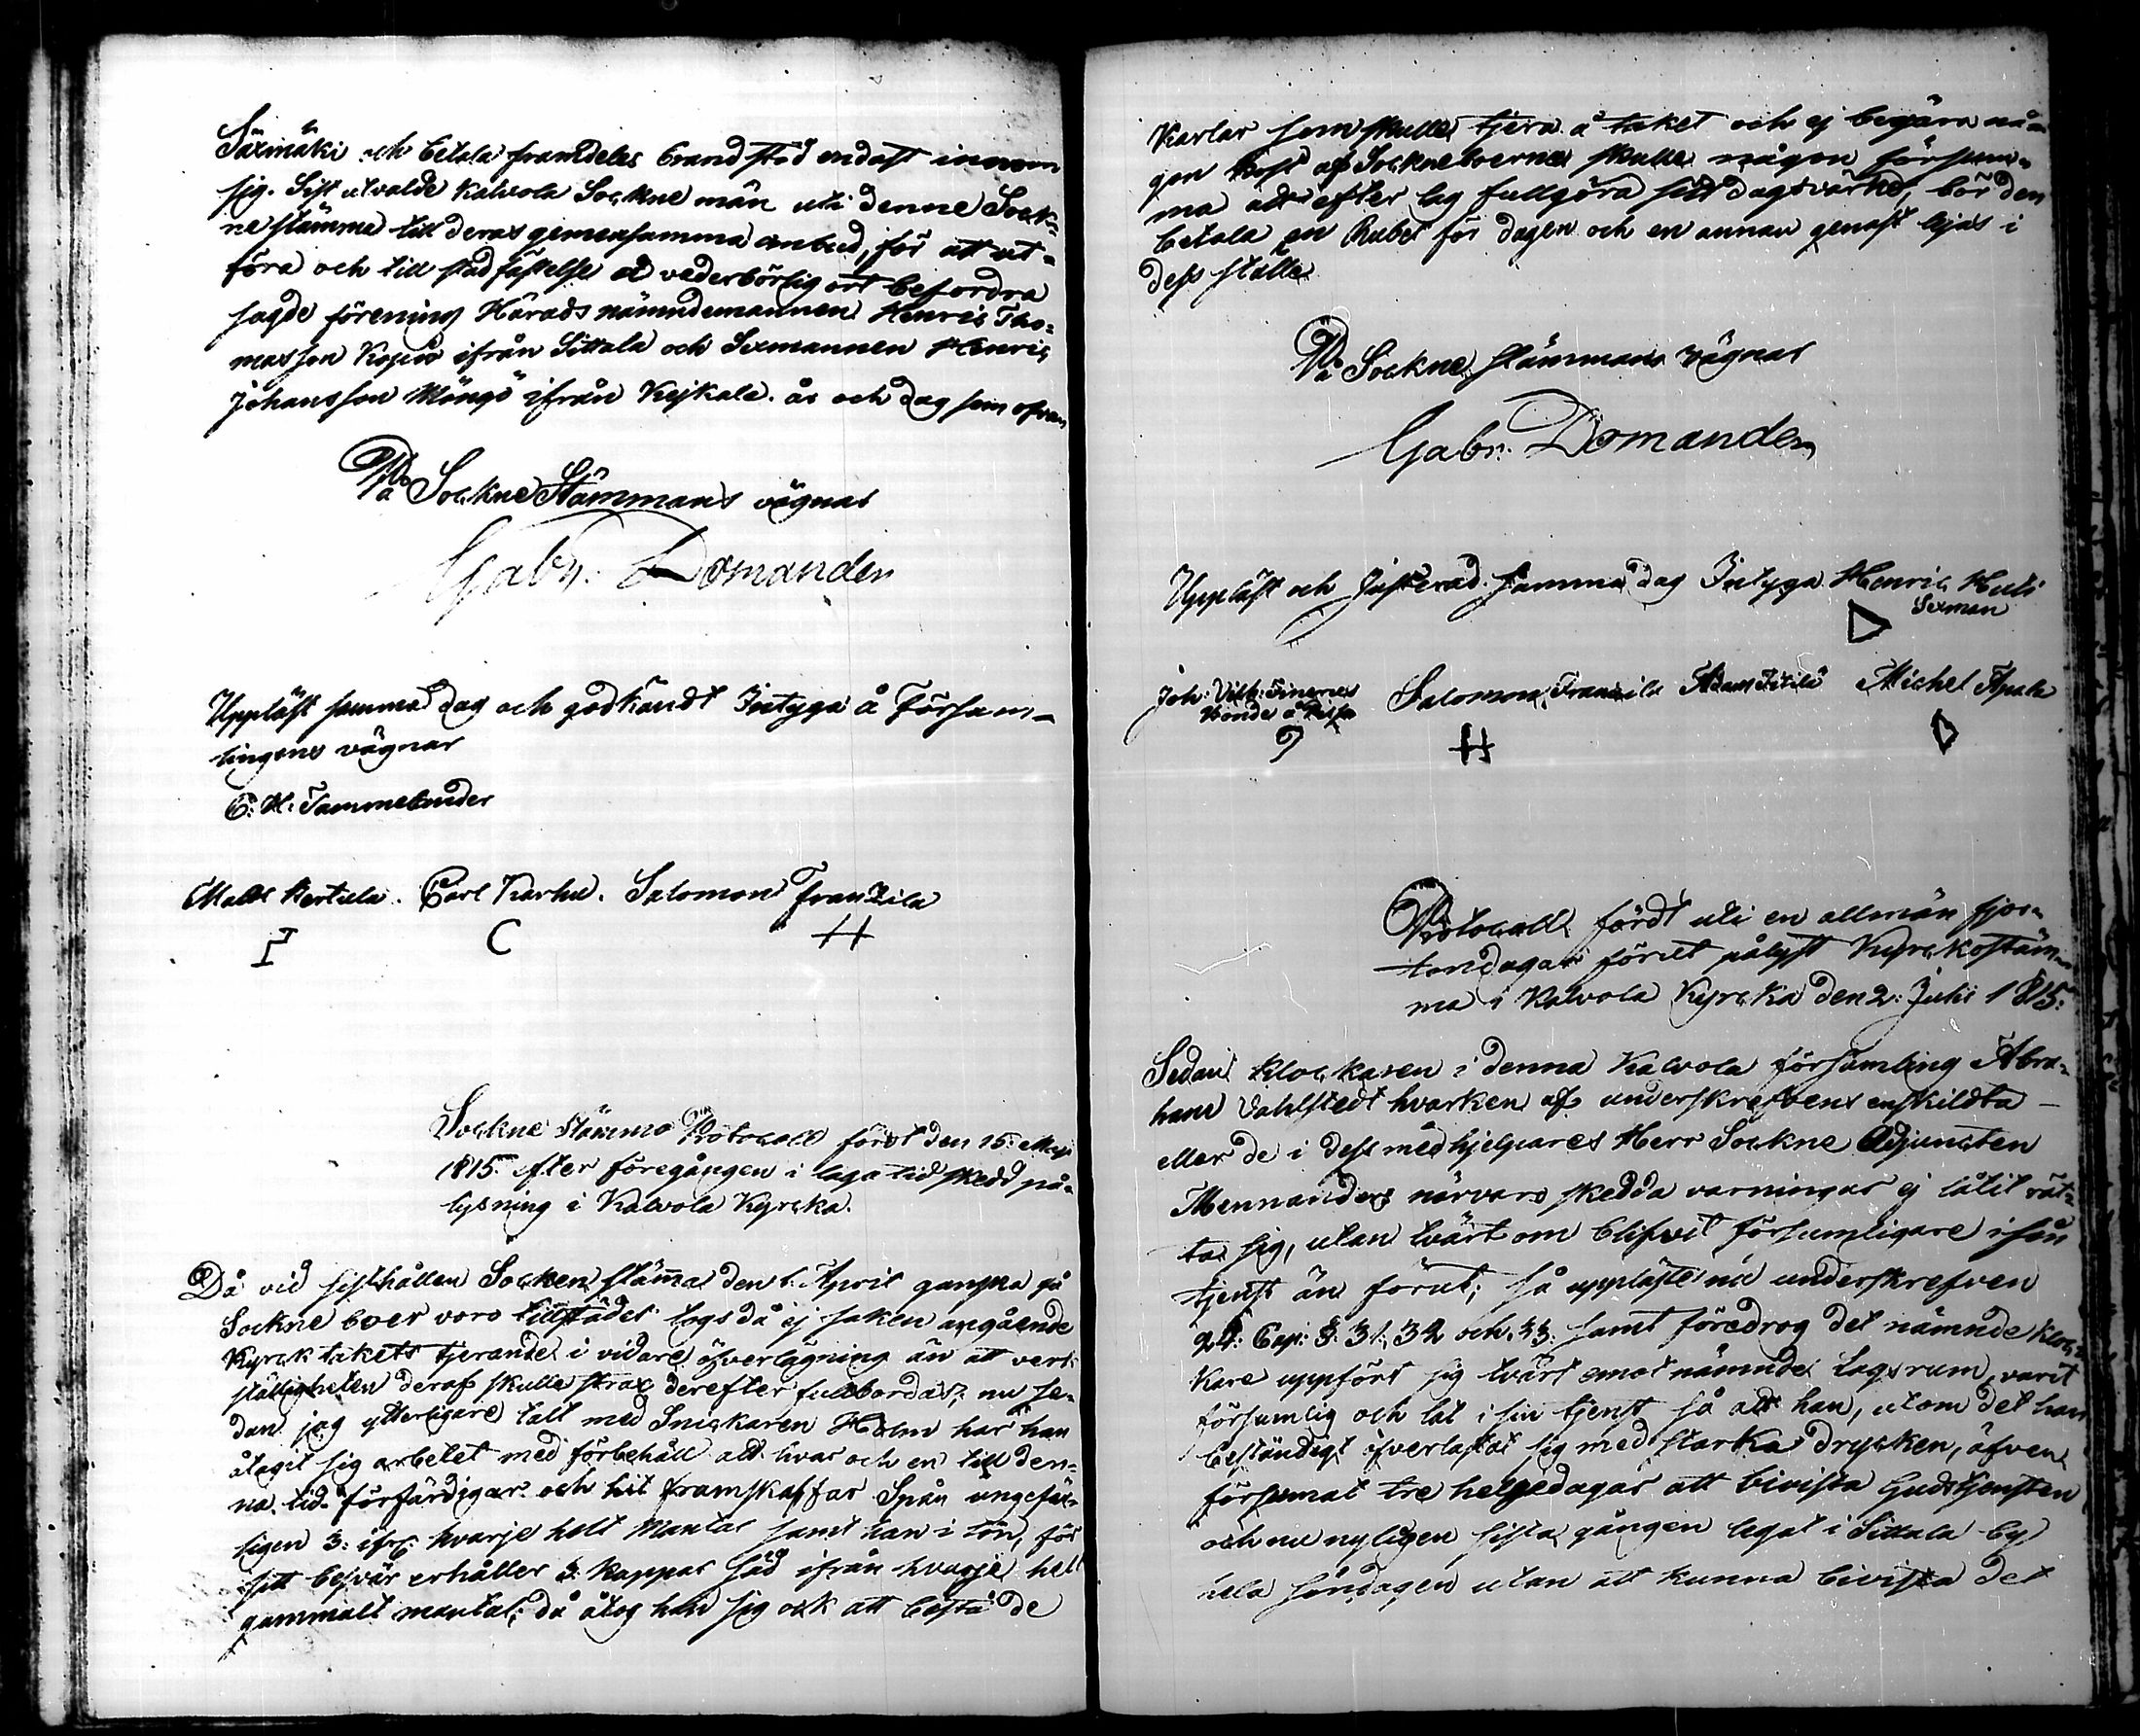 Säxmäki och betala framdeles brandstod endast innom
sig. Sist utvalde Kalvola Sockne män uti denne Sock-
nestämma till deras gemensamma ombud, för att ut-
föra och till stadfästelse å vederbörlig ort befordra
sagde förening Härads nämndemannen Henric Tho-
masson Kojvo ifrån Sittala och Sexmannen Henric
Johansson Möngö ifrån Kejkala. år och dag som ofvan
På Sockne Stämmans vägnar
Gabr. Domander
Uppläst samma dag och godkändt Intyga å Försam-
lingens vägnar
C: H: Tammelander
Matts Hertula. Carl Karhu. Salomon Franzila
I C H
Sockne Stämmo Protocoll fördt den 15: Maji
1815. efter föregången i laga tid skedd på-
lysning i Kalvola Kyrcka.
Då vid sisthållen Socken stämma den 1. April ganska få
Sockne boer voro tillstädes togs då ej saken angående
Kyrck takets tjerande i vidare öfverlägning än att verk-
ställigheten deraf skulle strax derefter fullbordas; nu se-
dan jag ytterligare talt med Snickaren Holm har han
åtagit sig arbetet med förbehåll att hvar och en till den-
na tid förfärdigar och hit framskaffar Spån ungefär-
ligen 3: ifr: hvarje helt Mantal samt han i lön, för
sitt besvär erhåller 3 kappar säd ifrån hvarje helt
gammalt mantal; då åtog han sig ock att bestå de
Karlar som skulle tjera å taket och ej begära nå-
gon kost af Sockneboerne skulle någon försum-
ma att efter lag fullgöra sitt dagsvärke, bör den
betala en Rubel för dagen och en annan genast lejas i
dess ställe
På Sockne stämmans vägnar
Gabr. Domander
Uppläst och Justerad samma dag Intyga Henric Huti
Sexman
Joh: Vilh: Finernes Salomon Franzila Adam Itilä Michel Apala
Bonde å
H
Protocoll fördt uti en allmän fjor-
tondagar förut pålyst Kyrckostäm-
ma i Kalvola Kyrcka den 2. Julii 1815.
Sedan Klockaren i denna Kalvola församling Abra-
ham Dahlstedt hvarken af underskrefvens enskildta
eller de i dess medhjelpares Herr Sockne Adjuncten
Mennanders närvaro skedda varningar ej låtit rät-
ta sig, utan tvärt om blifvit försumligare i sin
tjenst än förut; så uppläste nu underskrefven
24: Cap: §: 31, 32 och 33. samt föredrog det nämnde kloc-
kare uppfört sig tvärt emot nämnde Lagsrum, varit
försumlig och lat i sin tjenst så att han, utom det han
beständigt öfverlastat sig med starka drycken, äfven
försumat tre helgedagar att bivista Gudstjensten
och nu nyligen sista gången legat i Sittala by
hela söndagen utan att kunna bivista det